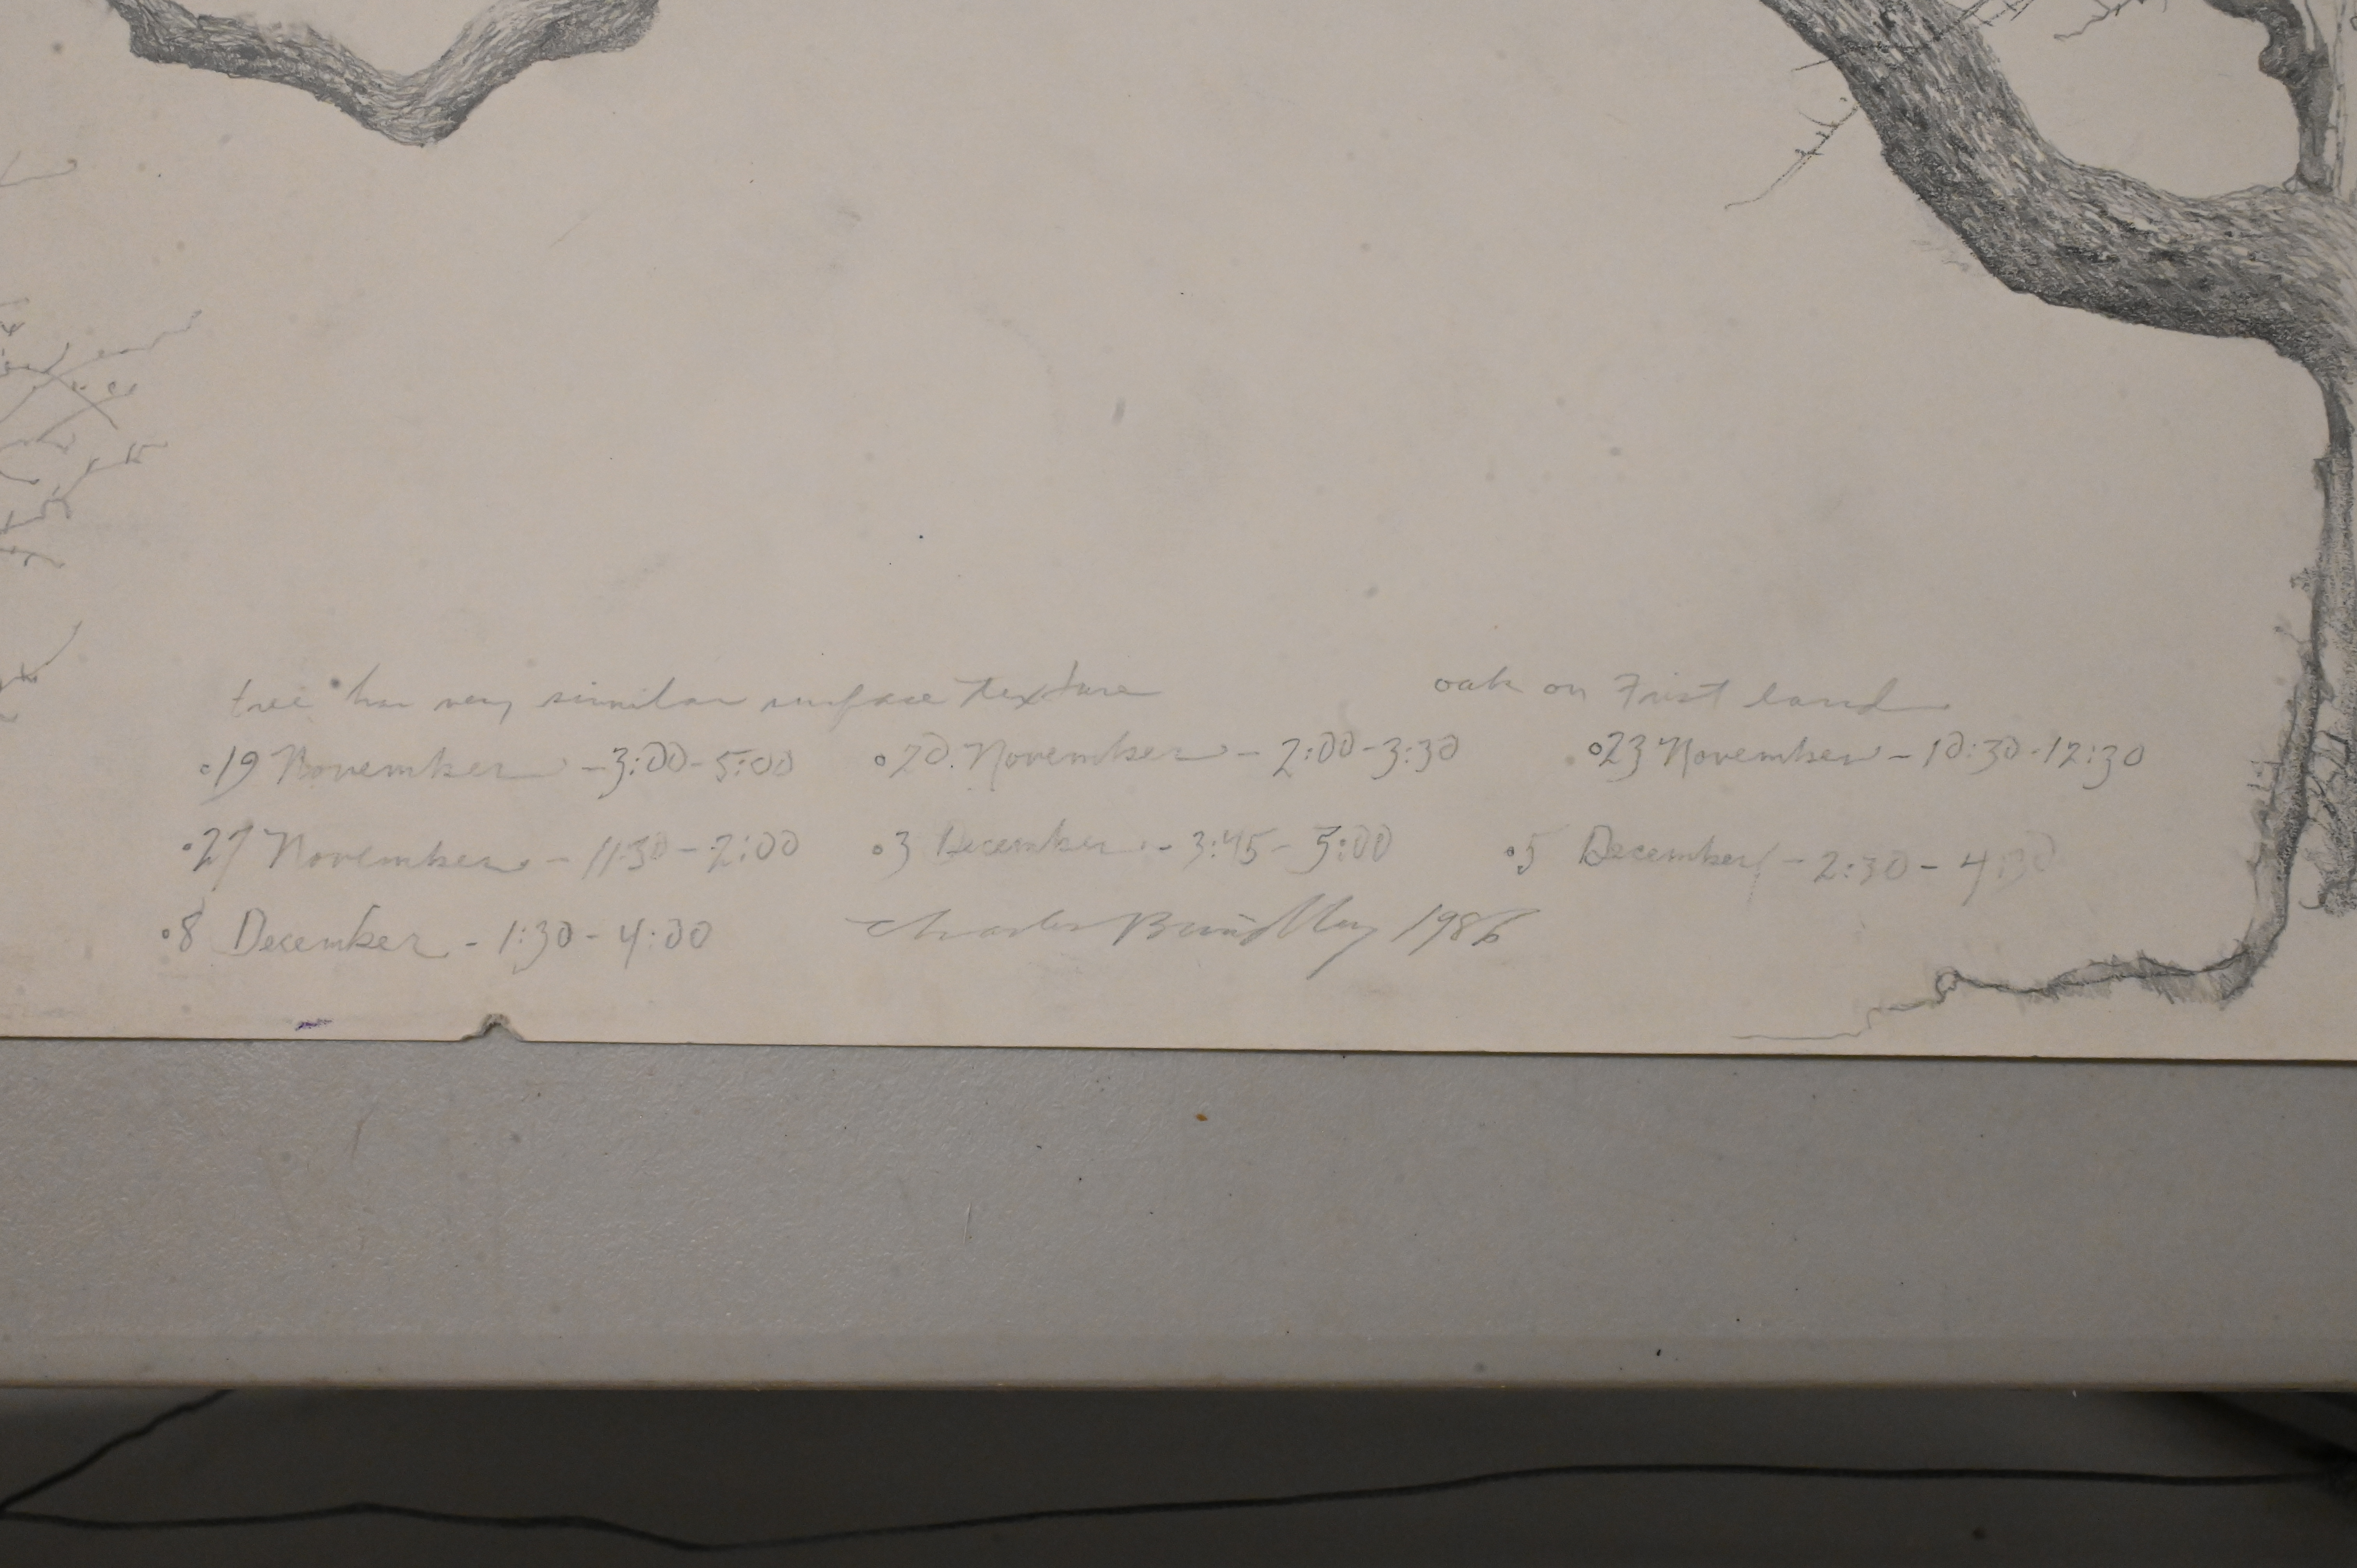 tree has very similar surface texture oak on Frist land
19 November - 3:00-5:00 20 November - 2:00-3:30 23 November - 10:30-12:30
27 November - 11:30-2:00 3 December - 3:45-5:00 5 December - 2:30-4:30
8 December - 1:30-4:00 Charles Brindley 1986